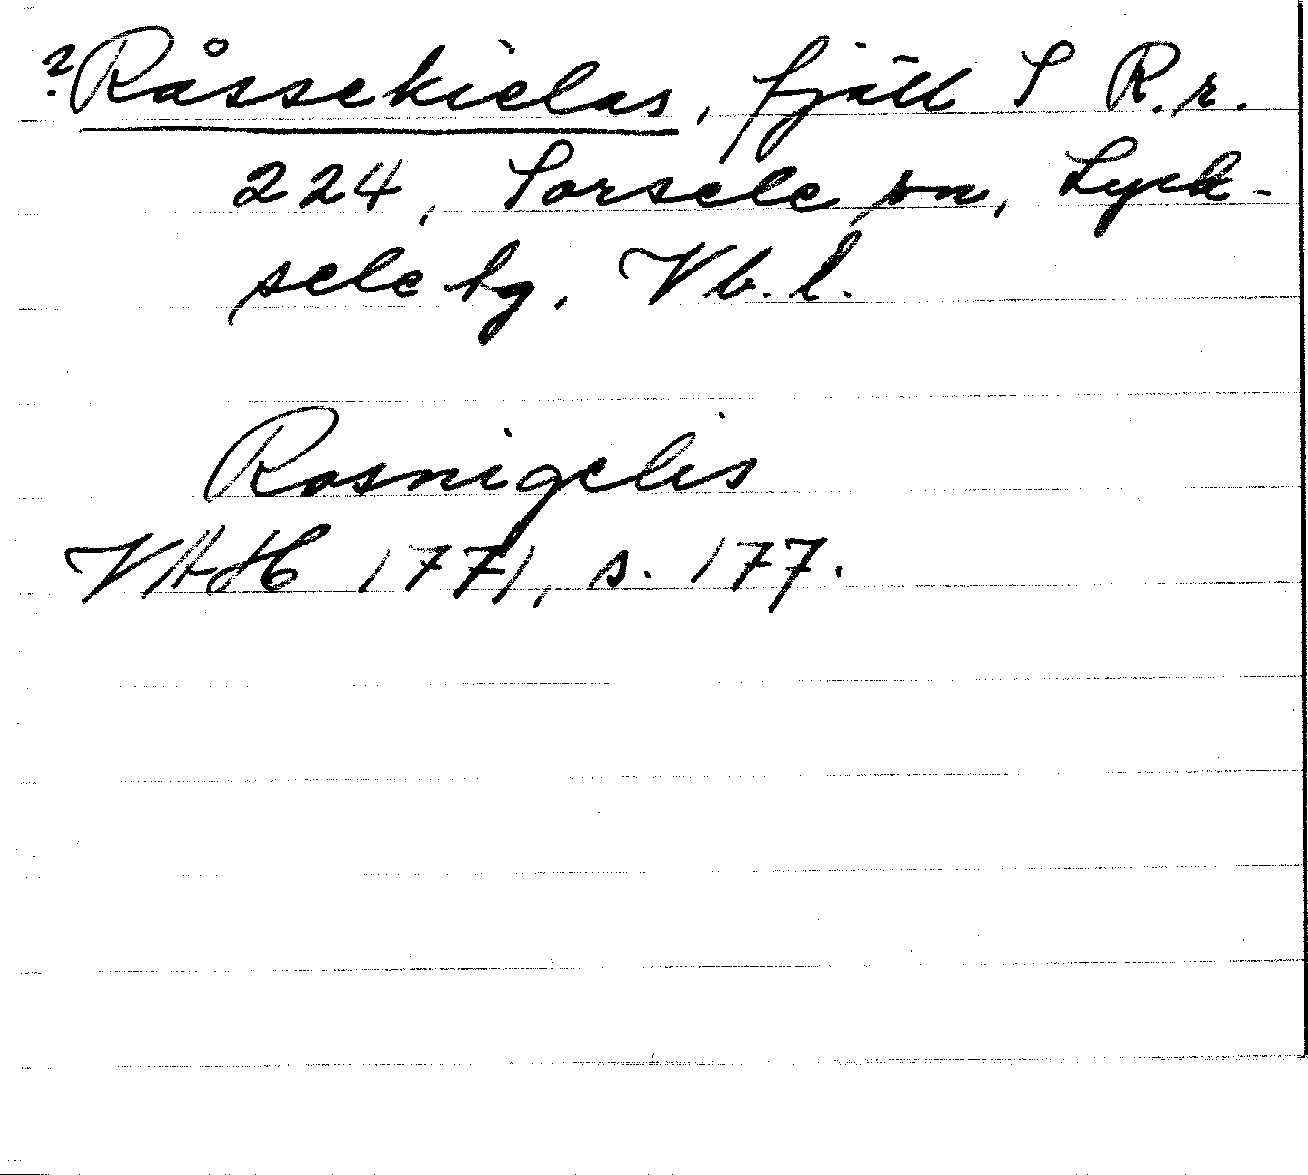 ?Råssekielas, fjäll S R.r.
224, Sorsele sn, Lyck-
sele lg, Vb. l.
Rosnigelis
VAH 1771, s. 177.